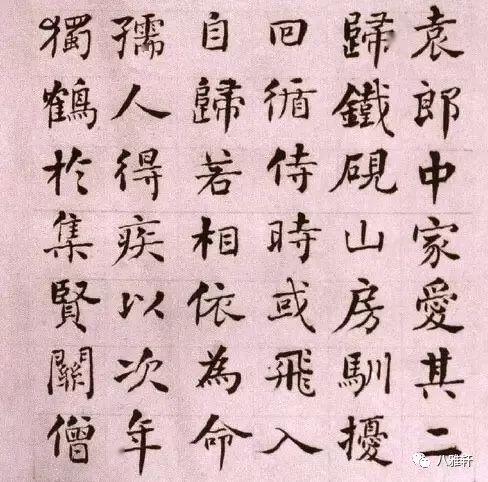 袁郎中家愛其二
歸鐵硯山房馴擾
回循侍時或飛入
自歸若相依為命
孺人得疾以次年
獨鶴於集賢關僧
八雅轩